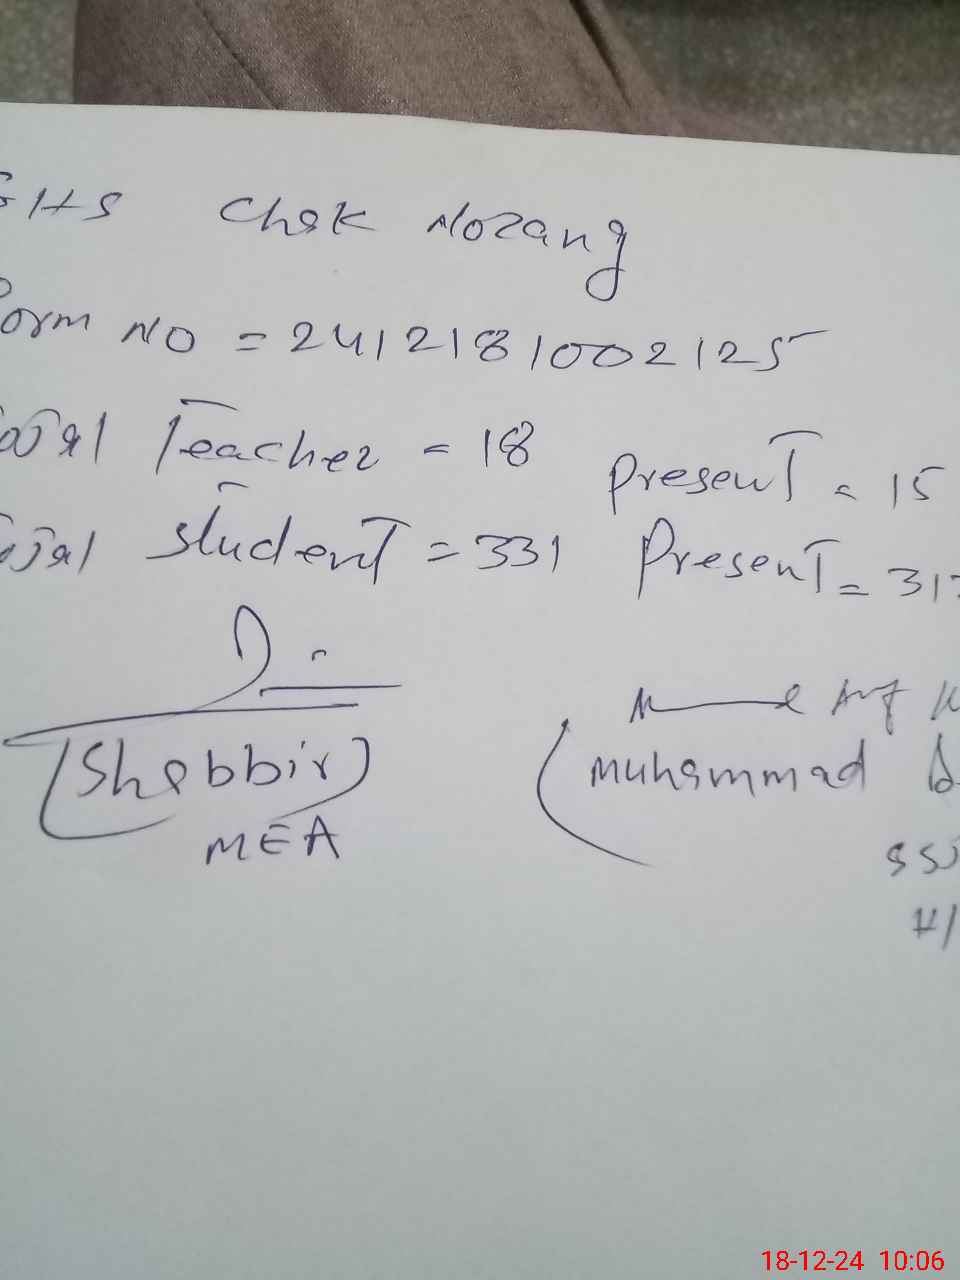 GHS Chak Nozang
Form NO = 2412181002125
Total Teacher = 18 Present = 15
Total Student = 331 Present = 317
(Shabbir)
MEA
(Muhammad
18-12-24 10:06